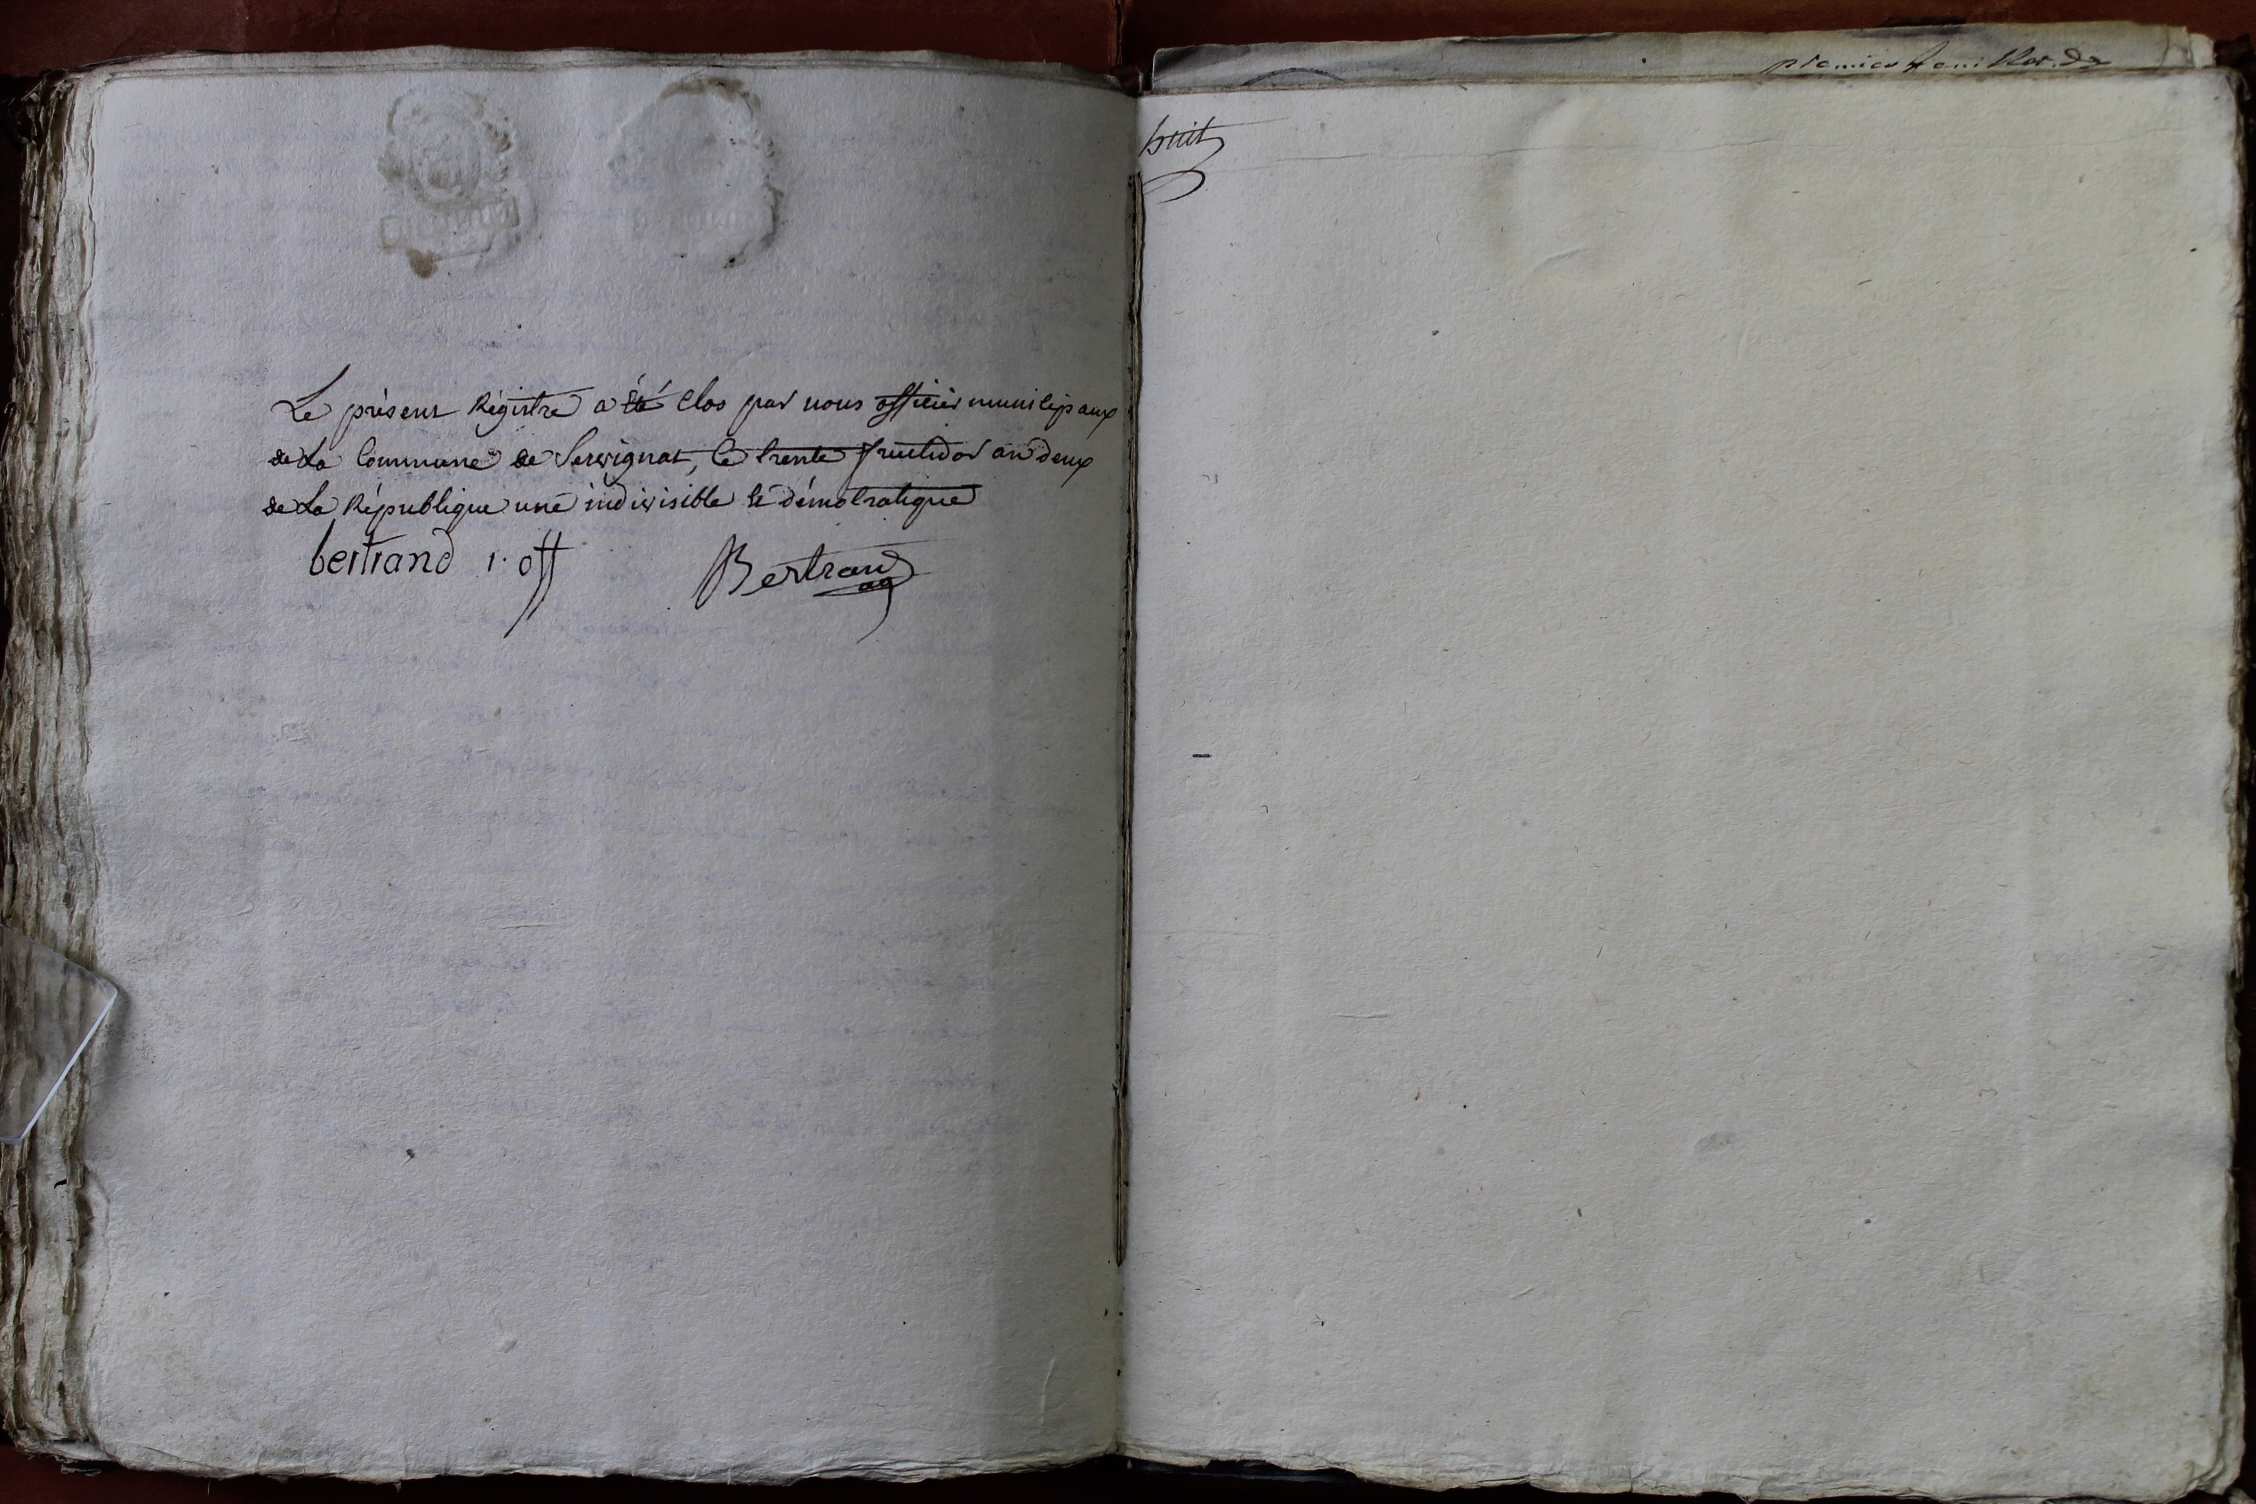 Le présent Régistre a été Clos par nous officier municipaux
de La Commune de Servignat, le trente fructidor an deux
de La République une indivisible et démocratique
bertrand 1. off
Bertrand
ag
premier feuillet. de
huit